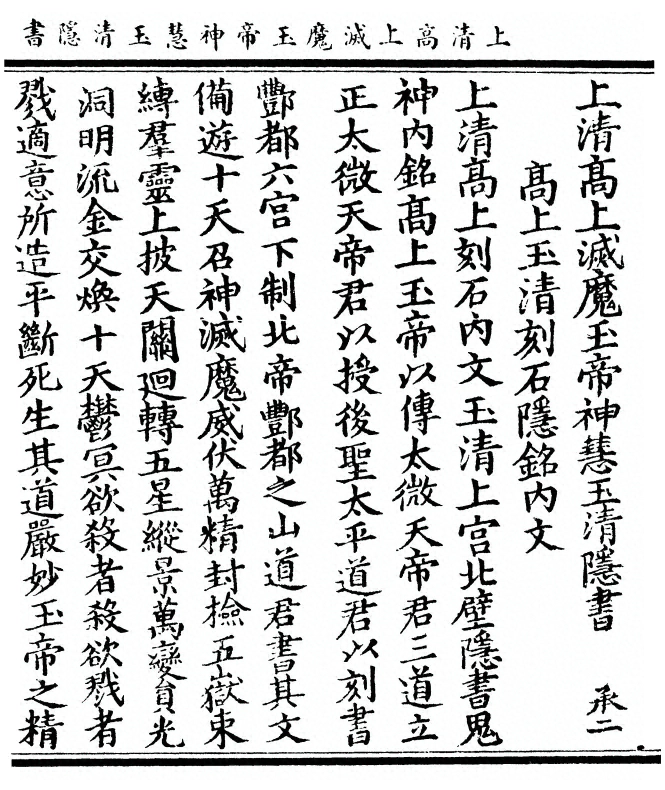 上清高上滅魔玉帝神慧玉清隱書
上清髙上滅魔玉帝神慧玉清隱書　承二
髙上玉清刻石隱銘内文
上清髙上刻石内文玉清上宫北壁隱書鬼
神内銘髙上玉帝以傳太微天帝君三道立
正太微天帝君以授後聖太平道君以刻書
酆都六宫下制北帝酆都之山道君書其文
備遊十天召神滅魔威伏萬精封撿五嶽束
縛羣靈上披天關廻轉五星縱景萬變負光
洞明流金交煥十天鬱冥欲殺者殺欲戮者
戮適意所造平斷死生其道嚴妙玉帝之精